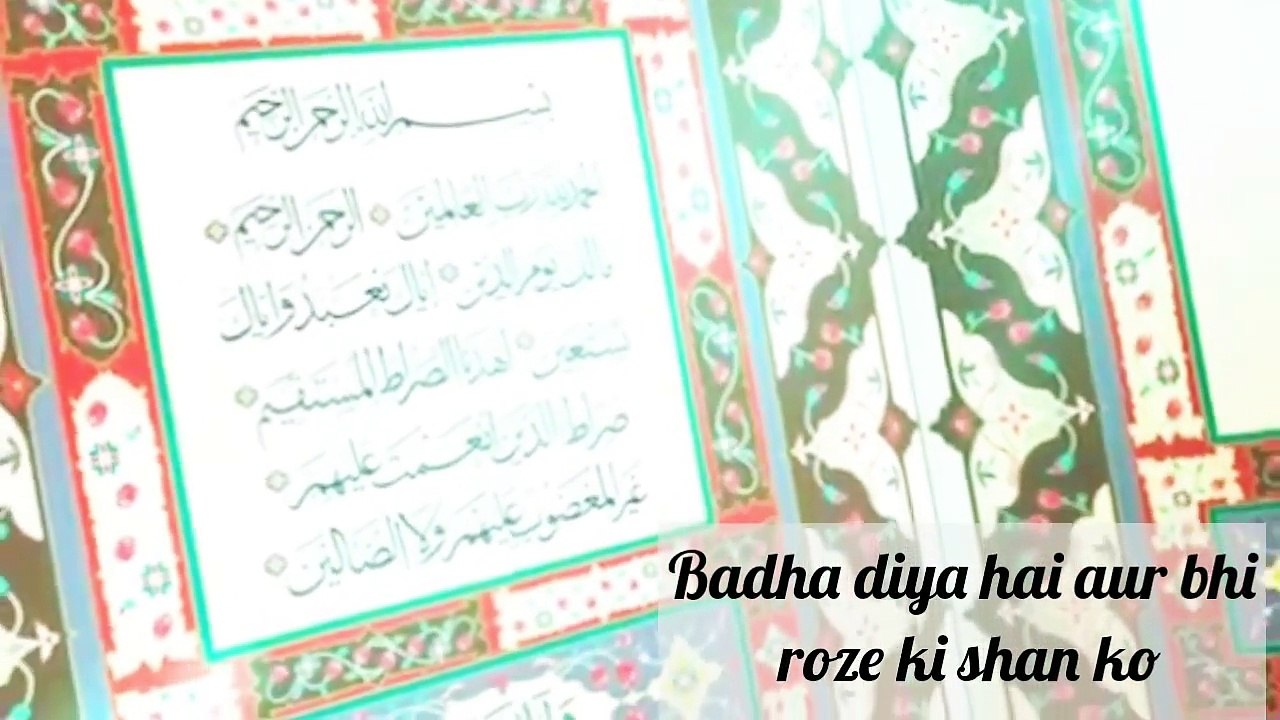 بسم الله الرحمن الرحيم
الحمد لله رب العالمين الرحمن الرحيم
مالك يوم الدين اياك نعبد واياك
نستعين اهدنا الصراط المستقيم
صراط الذين انعمت عليهم
غير المغضوب عليهم ولا الضالين
Badha diya hai aur bhi
roze ki shan ko